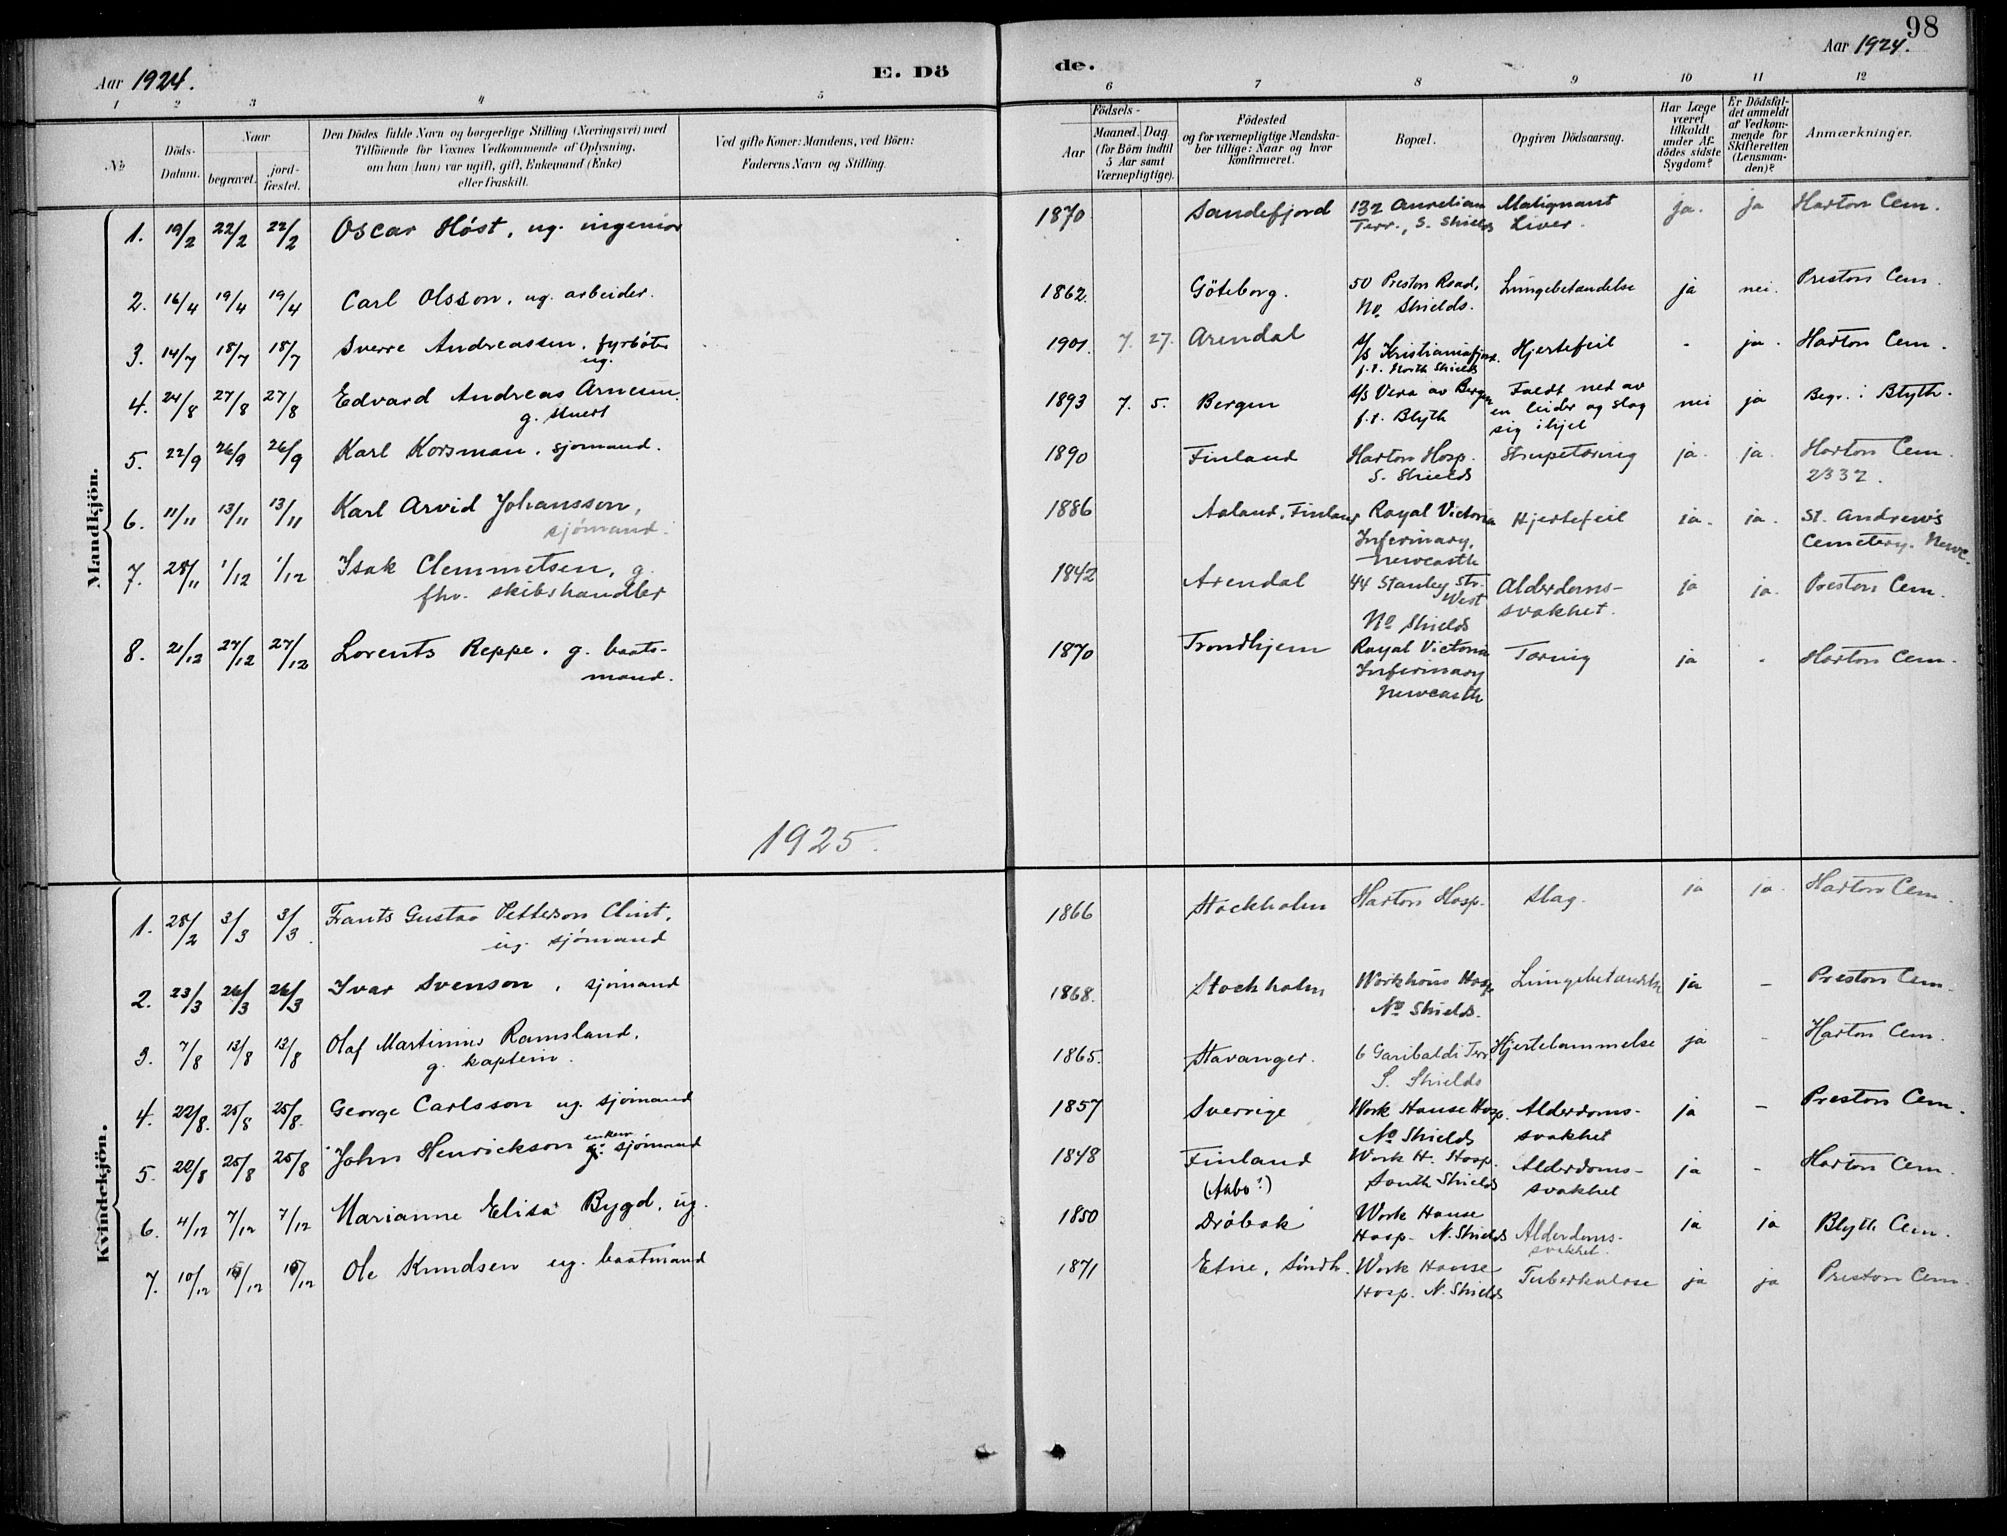 98
Aar 1924.
E. Dö
de.
Aar 1924.
1 2 3 4 5 6 7 8 9 10 11 12
No
Döds-
Datum.
Naar
begravet.
jord-
fæstet.
Den Dödes fulde Navn og borgerlige Stilling (Næringsvei) med
Tilföiende for Voxnes Vedkommende af Oplysning,
om han (hun) var ugift, gift, Enkemand (Enke)
eller fraskilt.
Ved gifte Koner: Mandens, ved Börn:
Faderens Navn og Stilling.
Födsels-
Aar
Maaned.
Dag
(for Börn indtil
5 Aar samt
Værnepligtige).
Födested
og for værnepligtige Mandska-
ber tillige: Naar og hvor
konfirmeret.
Bopæl.
Opgiven Dödsaarsag.
Har Læge
været
tilkaldt
under Af-
dödes sidste
Sygdom?
Er Dödsfal-
det anmeldt
af Vedkom-
mende for
Skifteretten
(Lensman-
den)?
Anmærkninger.
Mandkjön.
1. 19/2 22/2 22/2 Oscar Höst, ug. ingeniør 1870 Sandefjord 132 Aurelian Malignant ja. ja Harton Cem.
Terr., S. Shields Liver.
2. 16/4 19/4 19/4 Carl Olsson, ug. arbeider. 1862. Göteborg. 50 Preston Road, Lungebetændelse ja nei. Preston Cem.
No. Shields.
3. 14/7 18/7 18/7 Sverre Andreassen, fyrbøter 1901 7. 27. Arendal S/S Kristianiafjord. Hjertefeil - ja. Harton Cem.
ug. f.t. North Shields
4. 24/8 27/8 27/8 Edvard Andreas Arnesen. 1893 7. 5. Bergen S/S Vera av Bergen Faldt ned av nei ja Begr. i Blyth.
g. stuert f.t. Blyth en leider og slog
sig ihjel
5. 22/9 26/9 26/9 Karl Korsman, sjømand. 1890 Finland Harton Hosp. Strupetæring ja. ja. Harton Cem.
S. Shields 2332.
6. 11/11 13/11 13/11 Karl Arvid Johansson, 1886 Aaland, Finland Royal Victoria Hjertefeil ja. ja. St. Andrew's
sjømand. Infirmary, Cemetery. Newc.
Newcastle
7. 28/11 1/12 1/12 Isak Clemmetsen, g. 1842 Arendal 44 Stanley Str. Alderdoms- ja ja. Preston Cem.
fhv. skibshandler West svakhet.
No Shields
8. 21/12 27/12 27/12 Lorents Reppe, g. baats- 1870 Trondhjem Royal Victoria Tæring ja - Harton Cem.
mand. Infirmary
Newcastle
1925.
Kvindekjön.
1. 28/2 3/3 3/3 Frants Gustav Petterson Clint, 1866 Stockholm Harton Hosp. Slag. ja ja. Harton Cem.
ug. sjömand
2. 23/3 26/3 26/3 Ivar Svenson, sjömand 1868. Stockholm Workhous Hosp Lungebetændelse ja - Preston Cem.
No Shields.
3. 7/8 12/8 12/8 Olaf Martinius Ramsland, 1865. Stavanger. 6 Garibaldi Terr. Hjertelammelse ja - Harton Cem.
g. kaptein. S. Shields
4. 22/8. 25/8 25/8. George Carlsson ug. sjömand 1857 Sverrige Work House Hosp. Alderdoms- ja - Preston Cem.
No Shields svakhet
5. 22/8 25/8 25/8 John Henrickson enkem. sjömand 1848 Finland Work H. Hosp. Alderdoms- ja - Harton Cem.
(Aabo?) South Shields svakhet
6. 4/12 7/12 7/12 Marianne Elisa Bygd, ug. 1850 Dröbak Work House Alderdoms- ja ja Blyth Cem.
Hosp. N. Shields svakhet.
7. 10/12 15/12 15/12 Ole Knudsen ug. baatmand 1871 Etne, Söndh. Work House Tuberkulose ja ja Preston Cem.
Hosp. N. Shields